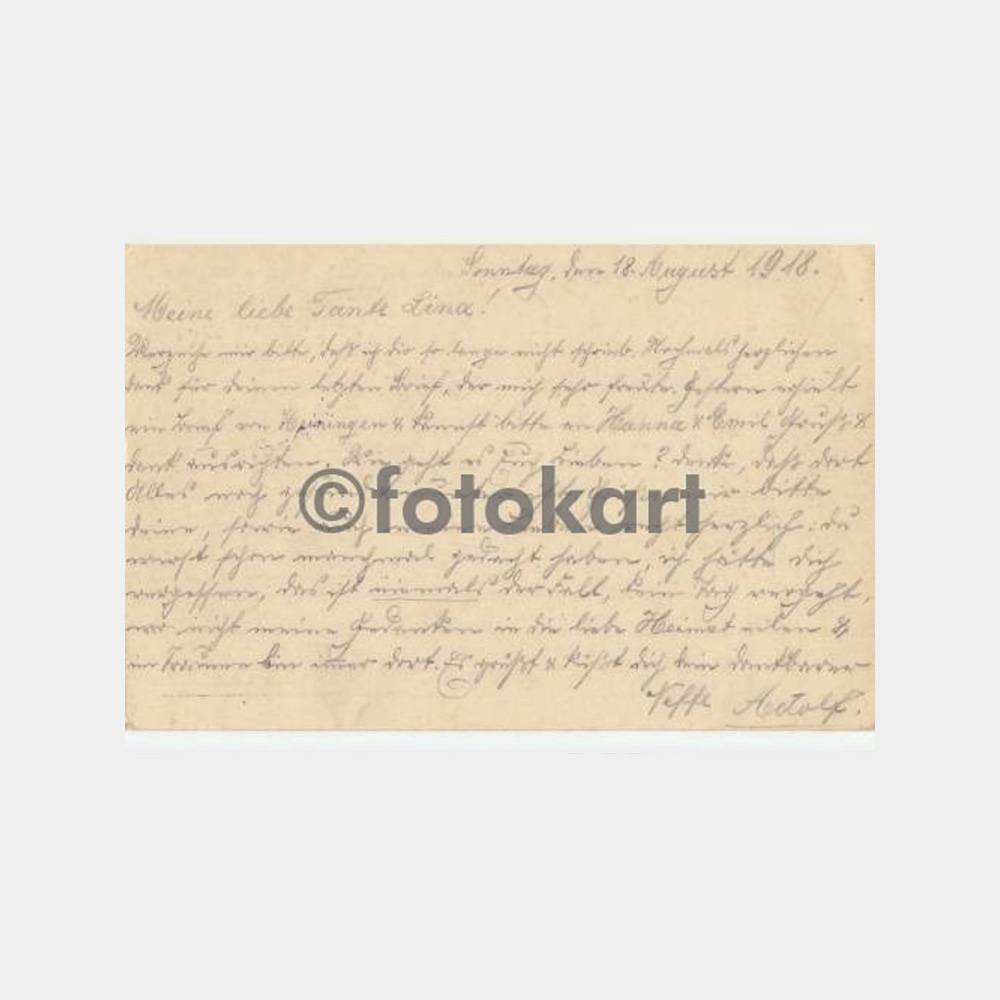 Sonntag, den 18. August 1918.
Meine liebe Tante Lina!
Verzeihe mir bitte, daß ich dir so lange nicht schrieb. Nochmals herzlichen
Dank für deinen letzten Brief, der mich sehr freute. Gestern erhielt
ein Brief von & kannst bitte an Hanna & Emil Gruß &
Dank ausrichten. Wie geht es Euch Lieben? Denke, daß dort
Alles noch bitte
©fotokart
deine, sowie herzlich. Du
wirst schon manchmal gedacht haben, ich hätte dich
vergessen, das ist niemals der Fall, kein Tag vergeht,
wo nicht meine Gedanken in die liebe Heimat eilen &
im Traume bin immer dort. Es grüßt & küßt dich dein dankbarer
Neffe Adolf.